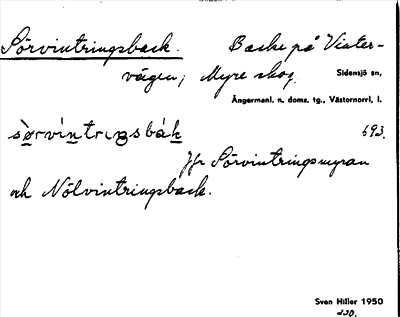 Sörvintringsback. Backe på Vinter-
vägen; Myre skog.
Sidensjö sn,
Ångermanl. n. doms. tg., Västernorrl. l.
693.
Jfr Sörvintringsmyran
och Nölvintringsback.
Sven Hiller 1950